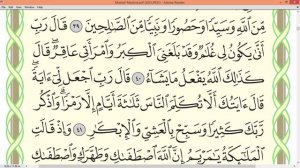 Mushaf Madina.pdf (SECURED) - Adobe Reader
مِّنَ ٱللَّهِ وَسَيِّدًا وَحَصُورًا وَنَبِيًّا مِّنَ ٱلصَّٰلِحِينَ ٣٩ قَالَ رَبِّ
أَنَّىٰ يَكُونُ لِي غُلَٰمٌ وَقَدْ بَلَغَنِيَ ٱلْكِبَرُ وَٱمْرَأَتِي عَاقِرٌ ۖ قَالَ
كَذَٰلِكَ ٱللَّهُ يَفْعَلُ مَا يَشَآءُ ٤٠ قَالَ رَبِّ ٱجْعَل لِّيٓ ءَايَةً ۖ
قَالَ ءَايَتُكَ أَلَّا تُكَلِّمَ ٱلنَّاسَ ثَلَٰثَةَ أَيَّامٍ إِلَّا رَمْزًا ۗ وَٱذْكُر
رَّبَّكَ كَثِيرًا وَسَبِّحْ بِٱلْعَشِيِّ وَٱلْإِبْكَٰرِ ٤١ وَإِذْ قَالَتِ
ٱلْمَلَٰٓئِكَةُ يَٰمَرْيَمُ إِنَّ ٱللَّهَ ٱصْطَفَىٰكِ وَطَهَّرَكِ وَٱصْطَفَىٰكِ